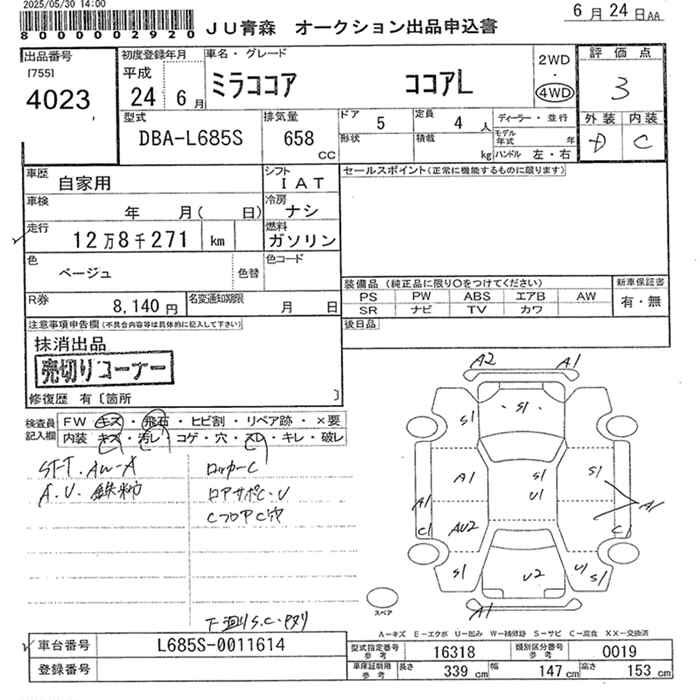 2025/05/30 14:00
8 0 0 0 0 0 2 9 2 0
JU青森 オークション出品申込書
6月24日AA
出品番号
[755]
4023
初度登録年月
平成
24 6月
車名・グレード
ミラココア ココアL
2WD
4WD
評価点
3
外装 内装
D C
型式
DBA-L685S
排気量
658
CC
ドア 5
形状
定員 4人
積載 kg
ディーラー・並行
モデル年式 年
ハンドル 左・右
車歴
自家用
シフト
IAT
車検
年 月( 日)
冷房
ナシ
走行
12万8千271 km
燃料
ガソリン
色
ベージュ
色替
色コード
R券
8,140円
名変通知期限
月 日
セールスポイント(正常に機能するものに限ります)
装備品 (純正品に限り○をつけてください)
PS PW ABS エアB AW
SR ナビ TV カワ
新車保証書
有・無
後日品
注意事項申告欄(不具合内容等は具体的に記入して下さい)
抹消出品
売切りコーナー
修復歴 有〔箇所 〕
検査員記入欄
FW キズ・飛石・ヒビ割・リペア跡・×要
内装 キズ・汚レ・コゲ・穴・スレ・キレ・破レ
SFT.AW-A
A.U.鉄粉
ロッカーC
ロアサポC・U
CフロアC穴
下廻りS.C・
A2 A1
S1 S1
A1 S1 S1
U1
A1 A1
C1 AU2 C1
S1 U2 U1 S1
A1
スペア
A-キズ E-エクボ U-凹み W-補修跡 S-サビ C-腐食 XX-交換済
車台番号
L685S-0011614
登録番号
型式指定番号 参考
16318
類別区分番号 参考
0019
車庫証明用 参考
長さ 339cm 幅 147cm 高さ 153cm